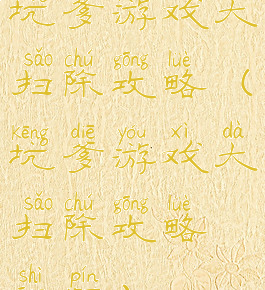 坑爹游戏大
sǎo chú gōng luè
扫除攻略（
kēng diē yóu xì dà
坑爹游戏大
sǎo chú gōng luè
扫除攻略
shì pín